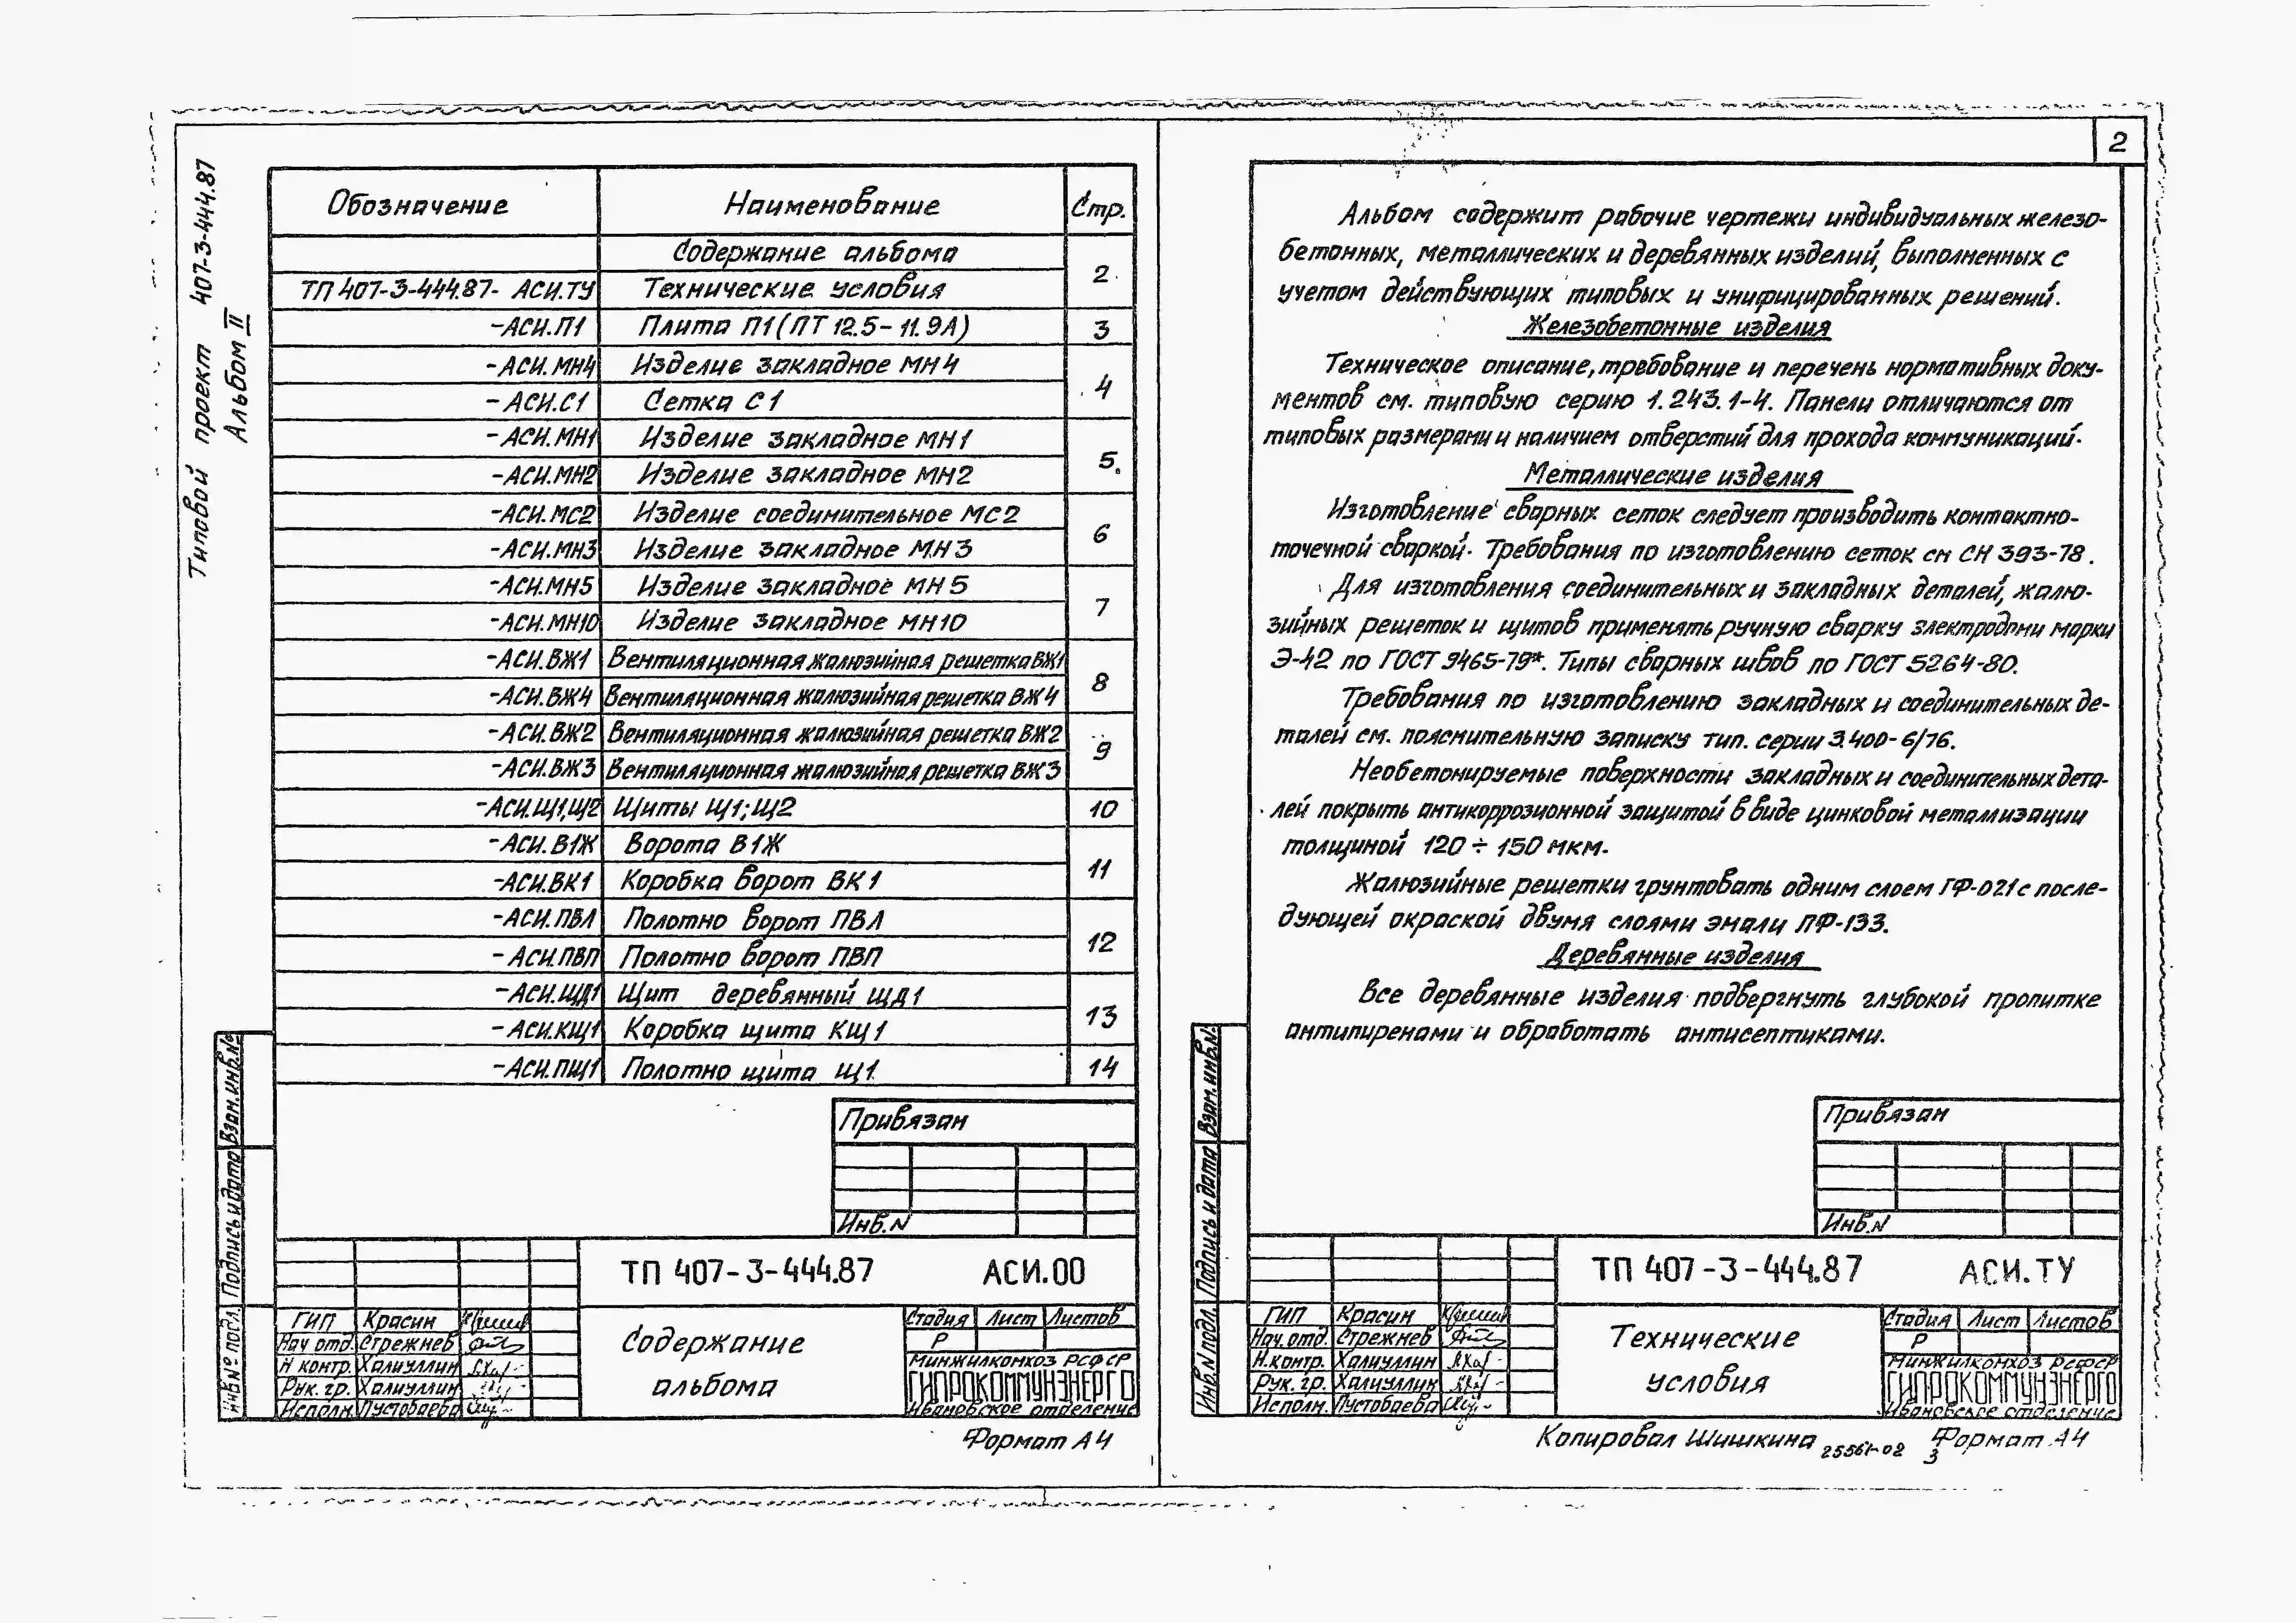 Типовой проект 407-3-444.87
Альбом II
Обозначение Наименование Стр.
Содержание альбома 2
ТП 407-3-444.87- АСИ.ТУ Технические условия
-АСИ.П1 Плита П1(ПТ 12.5-11.9А) 3
-АСИ.МН4 Изделие закладное МН4 4
-АСИ.С1 Сетка С1
-АСИ.МН1 Изделие закладное МН1 5
-АСИ.МН2 Изделие закладное МН2
-АСИ.МС2 Изделие соединительное МС2 6
-АСИ.МН3 Изделие закладное МН3
-АСИ.МН5 Изделие закладное МН5 7
-АСИ.МН10 Изделие закладное МН10
-АСИ.ВЖ1 Вентиляционная жалюзийная решетка ВЖ1 8
-АСИ.ВЖ4 Вентиляционная жалюзийная решетка ВЖ4
-АСИ.ВЖ2 Вентиляционная жалюзийная решетка ВЖ2 9
-АСИ.ВЖ3 Вентиляционная жалюзийная решетка ВЖ3
-АСИ.Щ1,Щ2 Щиты Щ1;Щ2 10
-АСИ.В1Ж Ворота В1Ж 11
-АСИ.ВК1 Коробка ворот ВК1
-АСИ.ПВЛ Полотно ворот ПВЛ 12
-АСИ.ПВП Полотно ворот ПВП
-АСИ.ЩД1 Щит деревянный ЩД1 13
-АСИ.КЩ1 Коробка щита КЩ1
-АСИ.ПЩ1 Полотно щита Щ1 14
Привязан
Инв.N
ТП 407-3-444.87 АСИ.00
ГИП Красин
Нач отд. Стрежнев
Н контр. Халиуллин
Рук. гр. Халиуллин
Исполн. Пустобаева
Содержание
альбома
Стадия Лист Листов
Р
Минжилкомхоз РСФСР
ГИПРОКОММУНЭНЕРГО
Ивановское отделение
Инв.№ подл. Подпись и дата Взам.инв.№
Формат А4
2
Альбом содержит рабочие чертежи индивидуальных железо-
бетонных, металлических и деревянных изделий, выполненных с
учетом действующих типовых и унифицированных решений.
Железобетонные изделия
Техническое описание, требование и перечень нормативных доку-
ментов см. типовую серию 1.243.1-4. Панели отличаются от
типовых размерами и наличием отверстий для прохода коммуникаций.
Металлические изделия
Изготовление сварных сеток следует производить контактно-
точечной сваркой. Требования по изготовлению сеток см СН 393-78.
Для изготовления соединительных и закладных деталей, жалю-
зийных решеток и щитов применять ручную сварку электродами марки
Э-42 по ГОСТ 9465-79*. Типы сварных швов по ГОСТ 5264-80.
Требования по изготовлению закладных и соединительных де-
талей см. пояснительную записку тип. серии 3.400-6/76.
Необетонируемые поверхности закладных и соединительных дета-
лей покрыть антикоррозионной защитой в виде цинковой металлизации
толщиной 120 ÷ 150 мкм.
Жалюзийные решетки грунтовать одним слоем ГФ-021 с после-
дующей окраской двумя слоями эмали ПФ-133.
Деревянные изделия
Все деревянные изделия подвергнуть глубокой пропитке
антипиренами и обработать антисептиками.
Привязан
Инв.N
ТП 407-3-444.87 АСИ.ТУ
ГИП Красин
Нач.отд. Стрежнев
Н.контр. Халиуллин
Рук. гр. Халиуллин
Исполн. Пустобаева
Технические
условия
Стадия Лист Листов
Р
Минжилкомхоз РСФСР
ГИПРОКОММУНЭНЕРГО
Ивановское отделение
Инв.N подл. Подпись и дата Взам.инв.N
Копировал Шишкина 25561-02 3 Формат А4